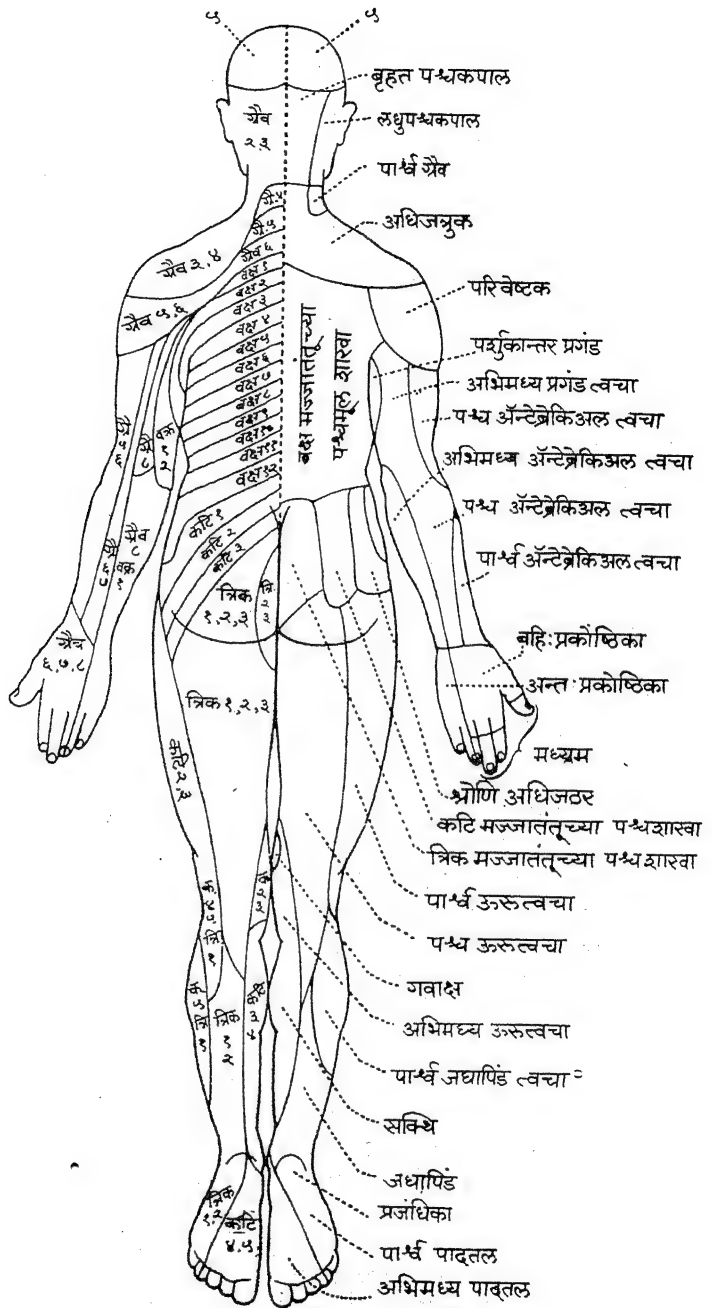 ५
५
बृहत पश्चकपाल
लघुपश्चकपाल
पार्श्व ग्रैव
अधिजत्रुक
परिवेष्टक
पर्शुकान्तर प्रगंड
अभिमध्य प्रगंड त्वचा
पश्च अ‍ॅन्टेब्रेकिअल त्वचा
अभिमध्य अ‍ॅन्टेब्रेकिअल त्वचा
पश्च अ‍ॅन्टेब्रेकिअल त्वचा
पार्श्व अ‍ॅन्टेब्रेकिअल त्वचा
बहिःप्रकोष्ठिका
अन्तःप्रकोष्ठिका
मध्यम
श्रोणि अधिजठर
कटि मज्जातंतूच्या पश्चशाखा
त्रिक मज्जातंतूच्या पश्चशाखा
पार्श्व ऊरुत्वचा
पश्च ऊरुत्वचा
गवाक्ष
अभिमध्य ऊरुत्वचा
पार्श्व जधापिंड त्वचा
सक्थि
जधापिंड
प्रजंधिका
पार्श्व पादतल
अभिमध्य पादतल
वक्ष मज्जातंतूच्या
पश्चमूल शाखा
ग्रैव
२,३
ग्रै.४
ग्रै.५
ग्रैव ६
वक्ष १
वक्ष २
वक्ष ३
वक्ष ४
वक्ष ५
वक्ष ६
वक्ष ७
वक्ष ८
वक्ष ९
वक्ष १०
वक्ष ११
वक्ष १२
ग्रैव ३,४
ग्रैव ५,६
ग्रै
५
६
ग्रै
८
वक्ष
१
२
ग्रैव
८
वक्ष
१
ग्रै
६
७
ग्रैव
६,७,८
कटि १
कटि २
कटि ३
त्रिक
१,२,३
त्रि
२
३
त्रिक १,२,३
कटि २,३
त्रि
१
कटि
३
४
त्रिक
१
२
त्रिक
१,२
कटि
४,५